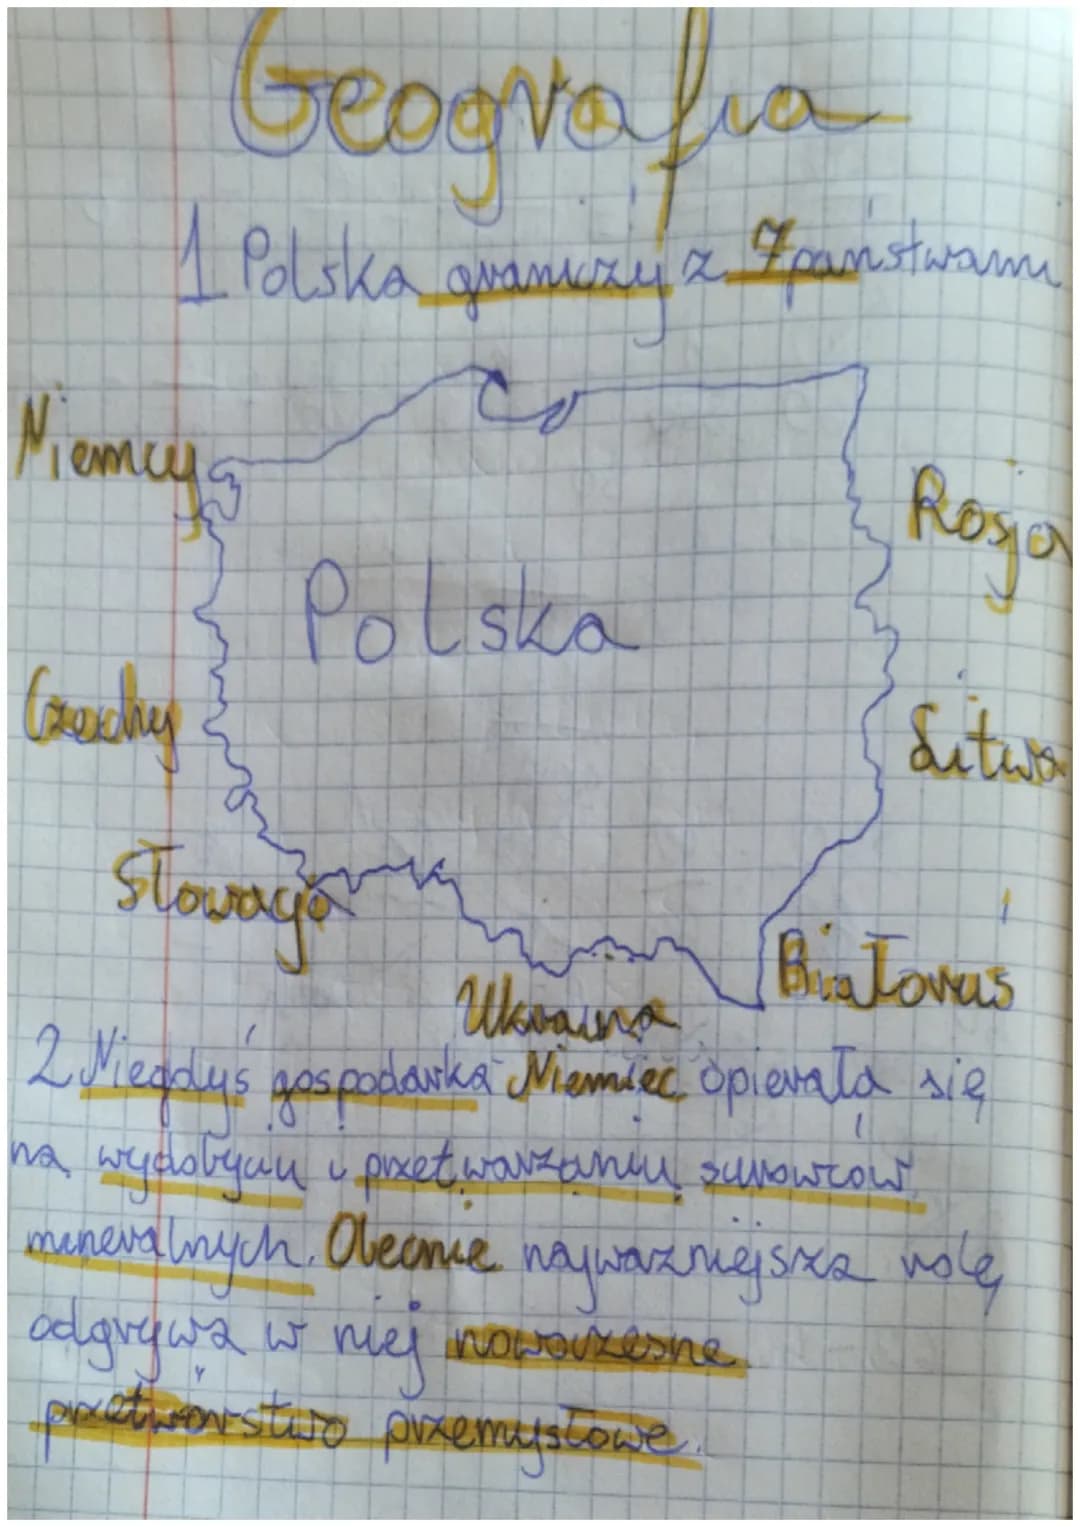 Geografia
1 Polska graniczy z 7 państwami
Niemcy
Rosja
Polska
Czechy
Litwa
Słowacja
Białoruś
Ukraina
2 Niegdyś gospodarka Niemiec opierała się
na wydobyciu i przetwarzaniu surowców
mineralnych. Obecnie najważniejsza rolę
odgrywa w niej nowoczesne
przetwórstwo przemysłowe.